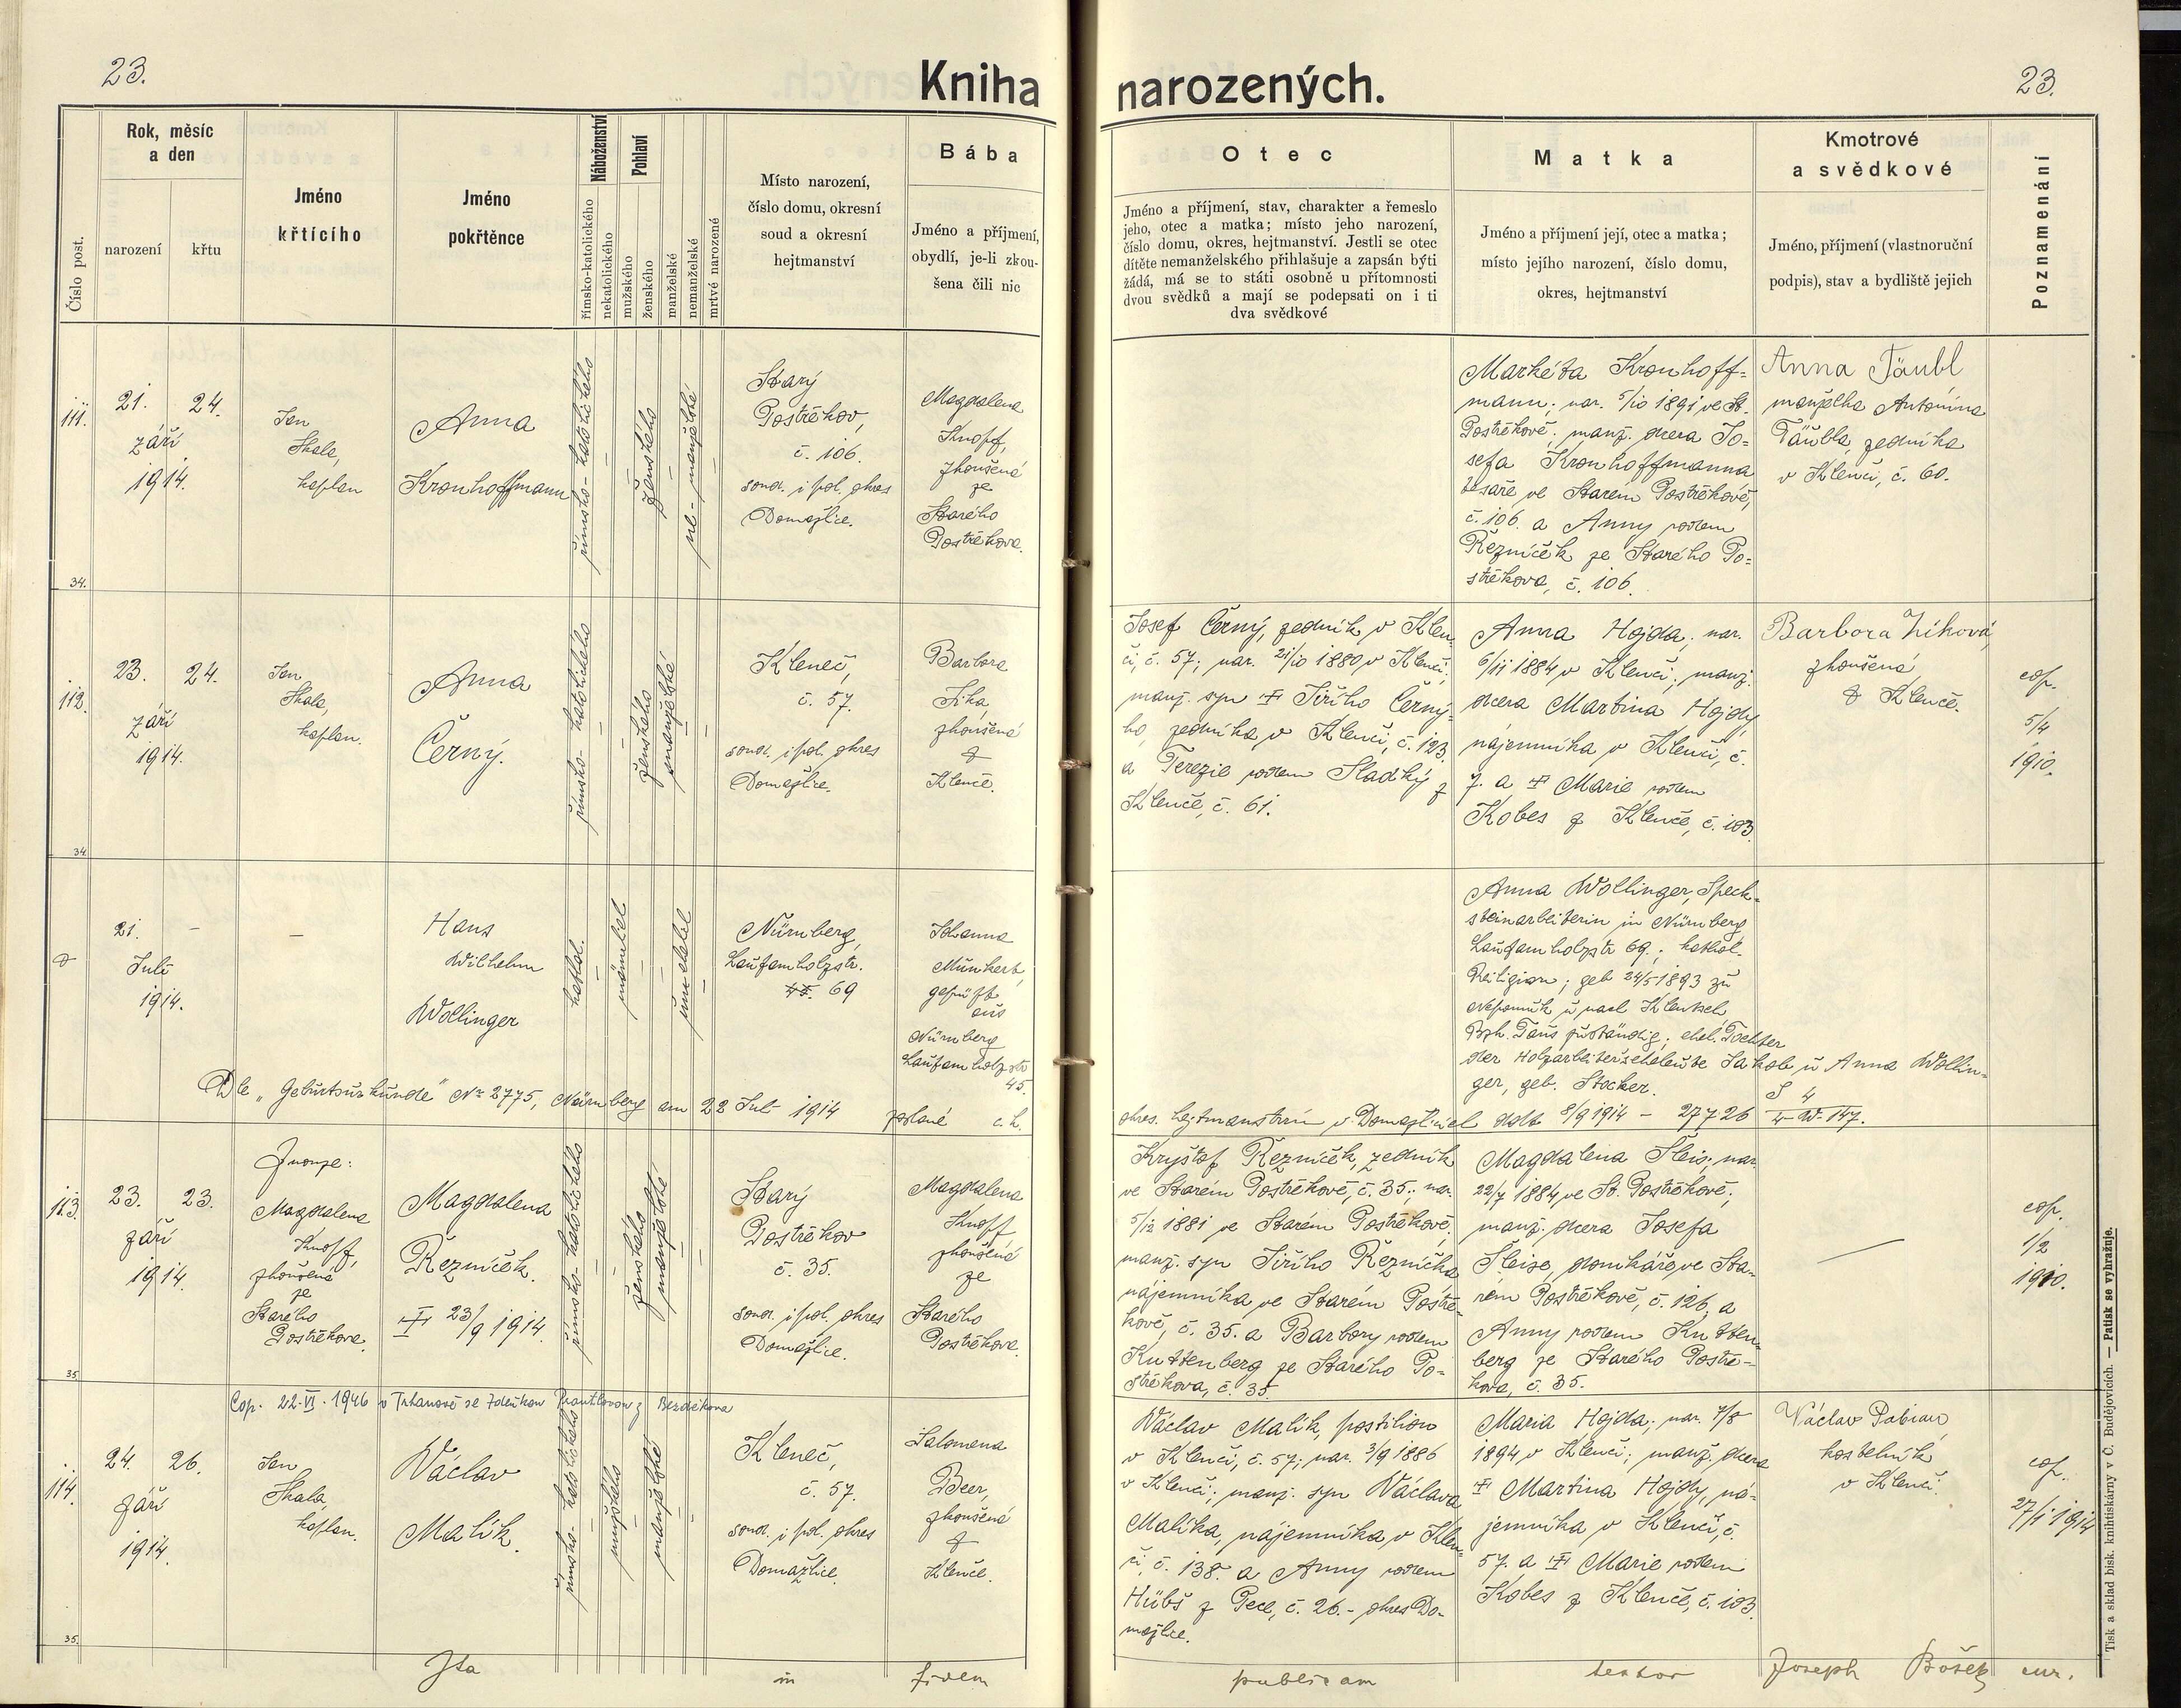 23.
Kniha narozených.
23.
Číslo post.
Rok, měsíc
a den
narození
křtu
Jméno
křtícího
Jméno
pokřtěnce
Náboženství
římsko-katolického
nekatolického
Pohlaví
mužského
ženského
manželské
nemanželské
mrtvé narozené
Místo narození,
číslo domu, okresní
soud a okresní
hejtmanství
Bába
Jméno a příjmení,
obydlí, je-li zkou-
šena čili nic
Otec
Jméno a příjmení, stav, charakter a řemeslo
jeho, otec a matka; místo jeho narození,
číslo domu, okres, hejtmanství. Jestli se otec
dítěte nemanželského přihlašuje a zapsán býti
žádá, má se to státi osobně u přítomnosti
dvou svědků a mají se podepsati on i ti
dva svědkové
Matka
Jméno a příjmení její, otec a matka;
místo jejího narození, číslo domu,
okres, hejtmanství
Kmotrové
a svědkové
Jméno, příjmení (vlastnoruční
podpis), stav a bydliště jejich
Poznamenání
111.
21. 24.
září
1914.
Jan
Skala,
kaplan
Anna
Kronhoffmann
římsko-katolického
ženského
ne-manželské
Starý
Postřekov,
č. 106.
soud. i pol. okres
Domažlice.
Magdalena
Knopf,
zkoušená
ze
Starého
Postřekova.
Markéta Kronhoff-
mann; nar. 5/10 1891 ve St.
Postřekově; manž. dcera Jo-
sefa Kronhoffmanna
tesaře ve Starém Postřekově,
č. 106. a Anny rodem
Řezníček ze Starého Po-
střekova, č. 106.
Anna Täubl
manželka Antonína
Täubla, zedníka
v Klenčí, č. 60.
34.
112.
23. 24.
září
1914.
Jan
Skala,
kaplan.
Anna
Černý.
římsko-katolického
ženského
manželské
Kleneč,
č. 57.
soud. i pol. okres
Domažlice.
Barbora
Žika,
zkoušená
z
Klenče.
Josef Černý, zedník v Klen-
čí, č. 57; nar. 21/10 1880 v Klenčí;
manž. syn † Jiřího Černý-
ho, zedníka v Klenčí, č. 123.
a Terezie rodem Sladký z
Klenče, č. 61.
Anna Hojda; nar.
6/11 1884 v Klenčí; manž.
dcera Martina Hojdy
nájemníka v Klenčí, č.
7. a † Marie rodem
Kobes z Klenče, č. 103.
Barbora Žiková,
zkoušená
z Klenče.
cop.
5/4
1910.
34.
21.
Juli
1914.
Hans
Wilhelm
Wollinger
kathol.
männlich
unehelich
Nürnberg,
Laufamholzstr.
45. 69
Johanna
Münkert,
geprüft
aus
Nürnberg
Laufamholzstr
45.
Anna Wollinger, Speck-
steinarbeiterin in Nürnberg
Laufamholzstr 69.; kathol.
Religion; geb 24/5 1893 zu
Nepomuk u. nach Klentsch,
Bzh. Taus zuständig; ehel. Tochter
der Holzarbeiterseheleute Jakob u Anna Wollin-
ger, geb. Stocker.
Dle „Geburtsurkunde" No 2775, Nürnberg am 22 Juli 1914 zaslané c. k.
okres. hejtmanstvím v Domažlicích ddto 8/9 1914 - 27726
113.
23. 23.
září
1914.
Znouze:
Magdalena
Knopf,
zkoušená
ze
Starého
Postřekova.
Magdalena
Řezníček.
† 23/9 1914.
římsko-katolického
ženského
manželské
Starý
Postřekov
č. 35.
soud. i pol. okres
Domažlice.
Magdalena
Knopf,
zkoušená
ze
Starého
Postřekova.
Kryštof Řezníček, zedník
ve Starém Postřekově, č. 35.; nar.
5/12 1881 ve Starém Postřekově;
manž. syn Jiřího Řezníčka
nájemníka ve Starém Postře-
kově, č. 35. a Barbory rodem
Kuttenberg ze Starého Po-
střekova, č. 35.
Magdalena Šleis; nar.
22/7 1884 ve St. Postřekově;
manž. dcera Josefa
Šleise, domkáře ve Sta-
rém Postřekově, č. 126. a
Anny rodem Kutten-
berg ze Starého Postře-
kova, č. 35.
cop.
1/2
1910.
35.
Cop. 22.VI.1946 v Trhanově se Zdeňkou Prantlovou z Bezděkova
114.
24. 26.
září
1914.
Jan
Skala,
kaplan.
Václav
Malík.
římsko-katolického
mužského
manželské
Kleneč,
č. 57.
soud. i pol. okres
Domažlice.
Salomena
Beer,
zkoušená
z
Klenče.
Václav Malík, postilion
v Klenčí, č. 57; nar. 3/9 1886
v Klenčí; manž. syn Václava
Malíka, nájemníka v Klen-
čí, č. 138. a Anny rodem
Hübš z Pece, č. 26. - okres Do-
mažlice.
Maria Hojda; nar. 7/8
1894 v Klenčí; manž. dcera
† Martina Hojdy, ná-
jemníka v Klenčí, č.
57. a † Marie rodem
Kobes z Klenče, č. 103.
Václav Pabian,
kostelník
v Klenčí.
cop.
27/1 1914
35.
Ita in fidem publicam testor Joseph Bošek cur.
Tisk a sklad bisk. knihtiskárny v Č. Budějovicích. — Patisk se vyhražuje.